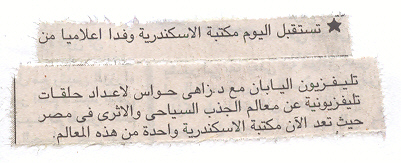 ★ تستقبل اليوم مكتبة الاسكندرية وفدا اعلاميا من
تليفزيون اليابان مع د.زاهى حواس لاعداد حلقات
تليفزيونية عن معالم الجذب السياحى والاثرى فى مصر
حيث تعد الآن مكتبة الاسكندرية واحدة من هذه المعالم.